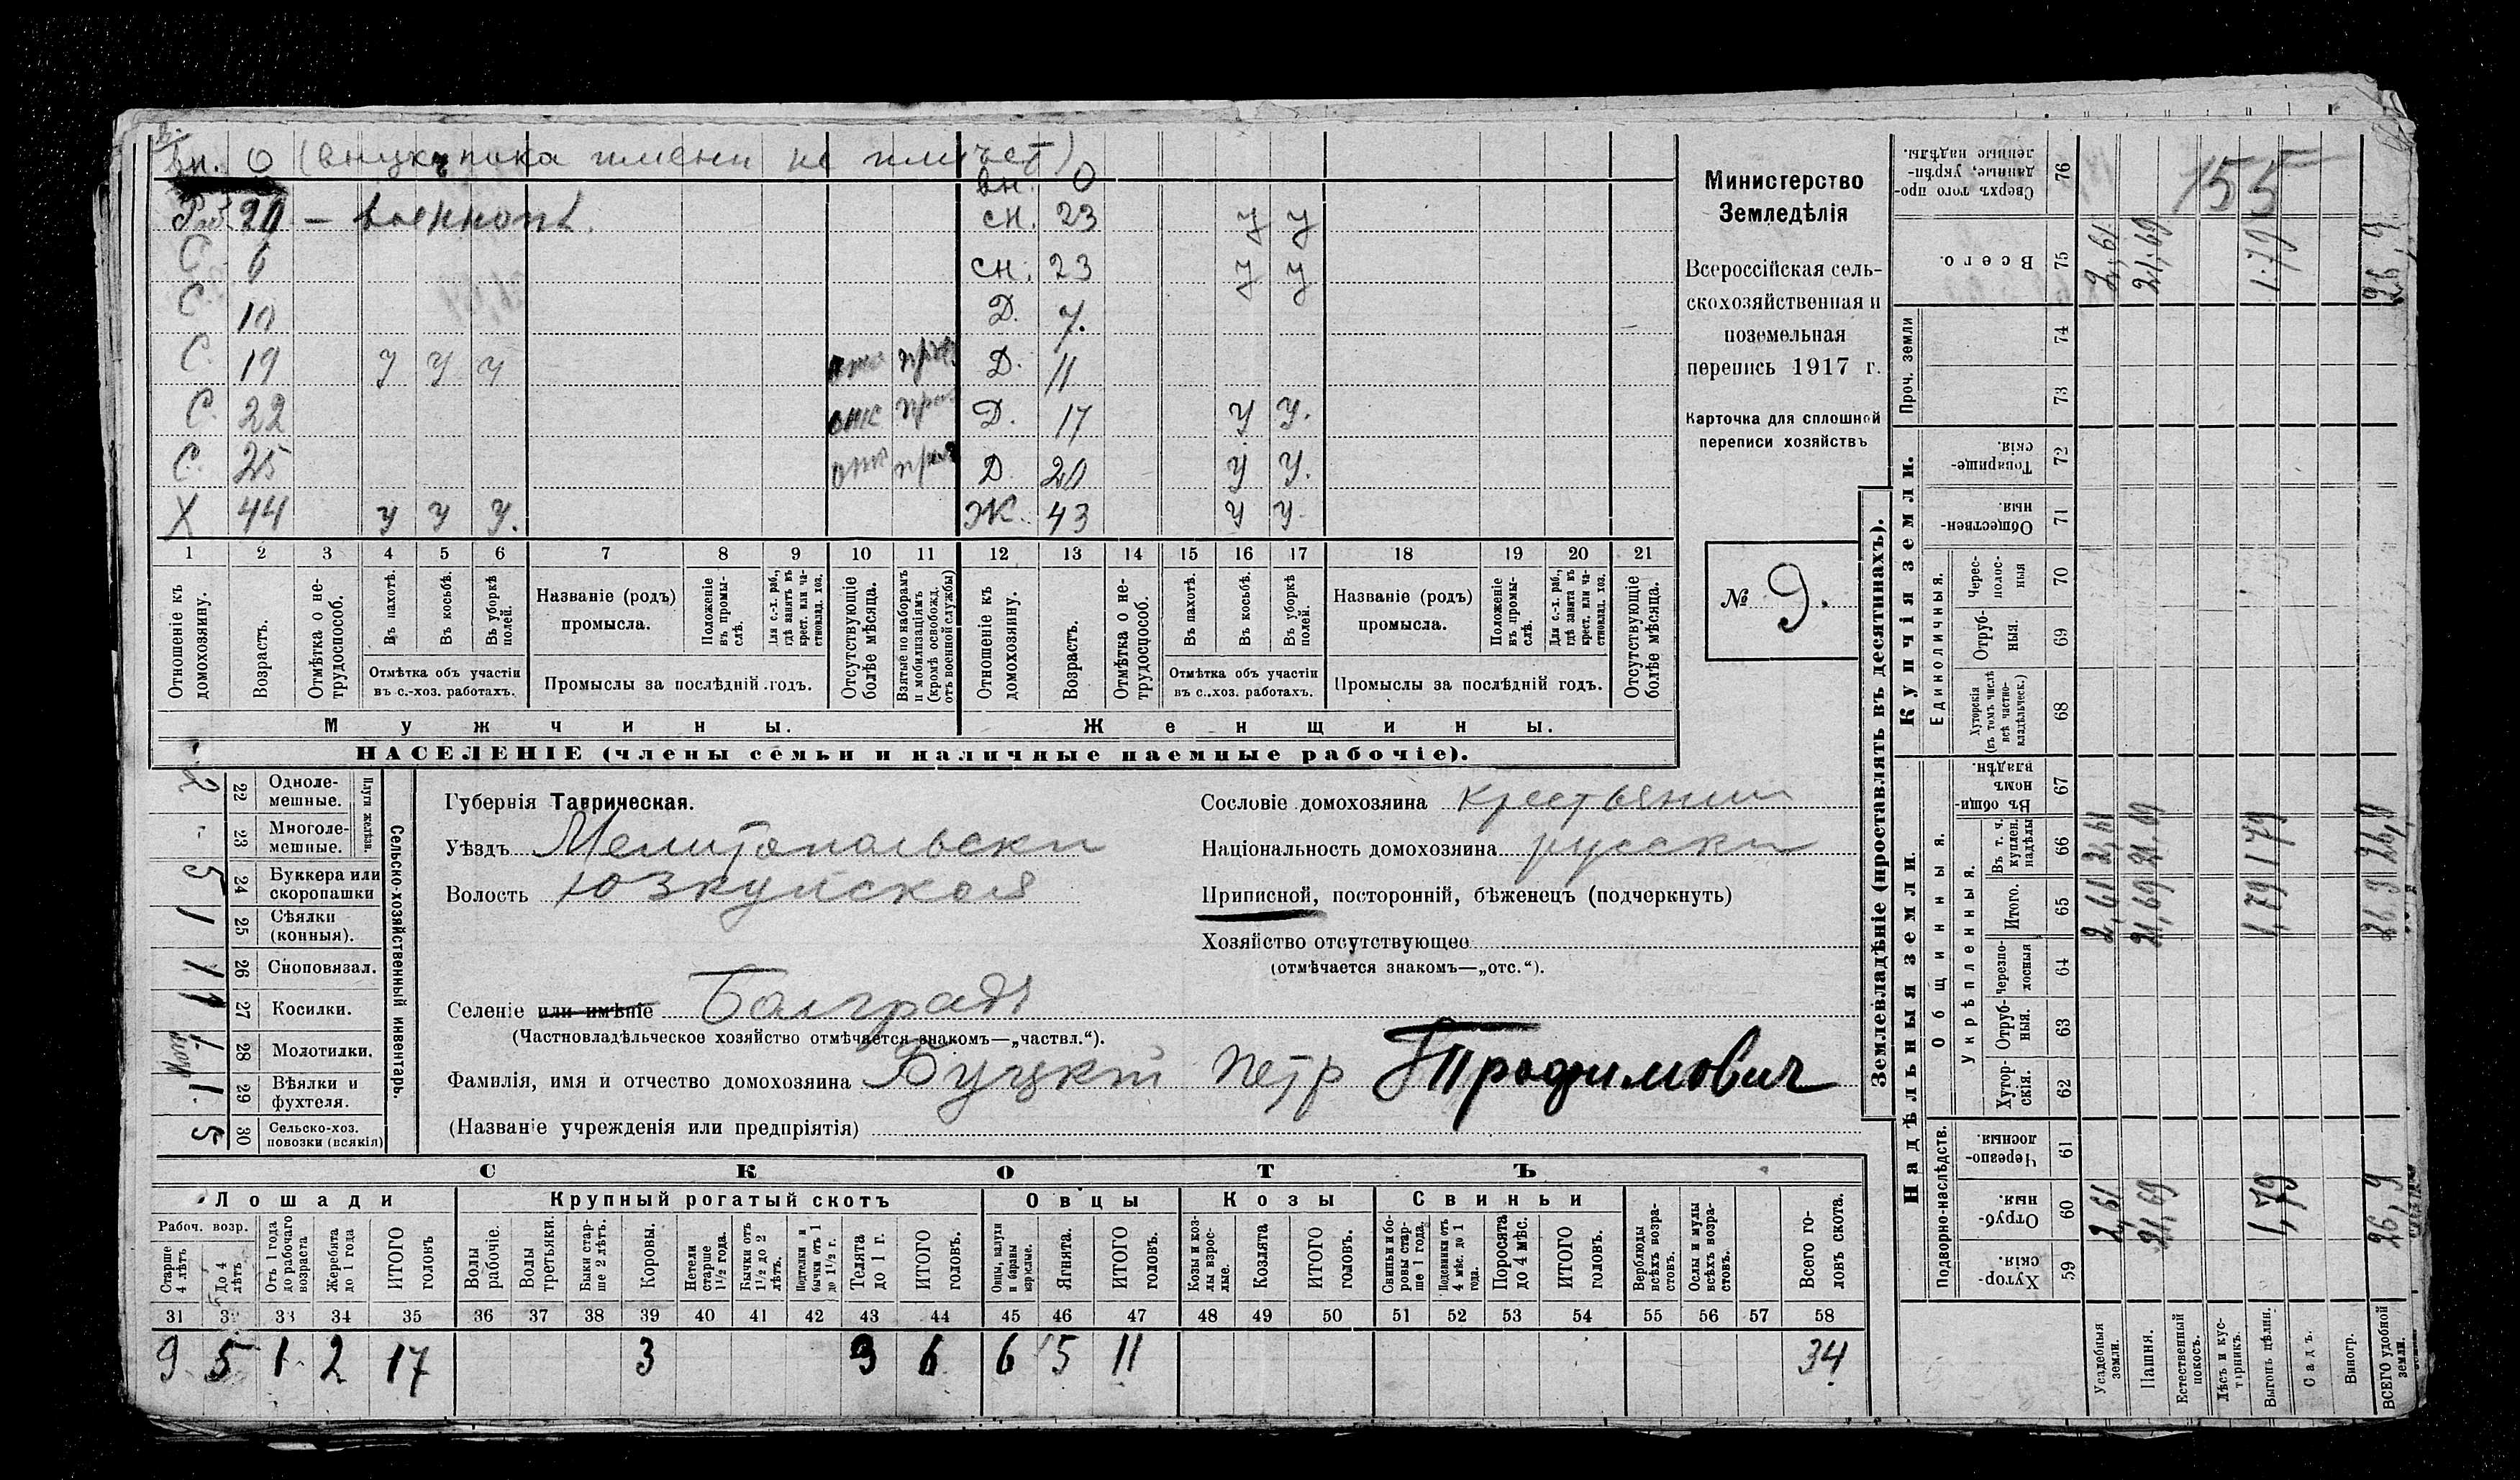 вн. 0 (внук пока имени не имеет)
вн. 0
Раб. 20 — военнопл.
сн. 23 У У
С 6
сн. 23 У У
С 10
Д. 7.
С. 19 У У У
Д. 11
С. 22
Д. 17 У У.
С. 25
Д. 20 У У.
Х 44 У У У.
Ж. 43 У У
1 2 3 4 5 6 7 8 9 10 11 12 13 14 15 16 17 18 19 20 21
Отношеніе къ домохозяину.
Возрастъ.
Отмѣтка о не-трудоспособ.
Въ пахотѣ.
Въ косьбѣ.
Въ уборкѣ полей.
Отмѣтка объ участіи
въ с.-хоз. работахъ.
Названіе (родъ)
промысла.
Положеніе въ промы-слѣ.
Для с.-х. раб., гдѣ занятъ въ крест. или ча-стновлад. хоз.
Промыслы за послѣдній годъ.
Отсутствующіе болѣе мѣсяца.
Взятые по наборамъ и мобилизаціямъ (кромѣ освобожд. отъ военной службы)
Отношеніе къ домохозяину.
Возрастъ.
Отмѣтка о не-трудоспособ.
Въ пахотѣ.
Въ косьбѣ.
Въ уборкѣ полей.
Отмѣтка объ участіи
въ с.-хоз. работахъ.
Названіе (родъ)
промысла.
Положеніе въ промы-слѣ.
Для с.-х. раб., гдѣ занята въ крест. или ча-стновлад. хоз.
Промыслы за послѣдній годъ.
Отсутствующіе болѣе мѣсяца.
Мужчины.
Женщины.
НАСЕЛЕНІЕ (члены семьи и наличные наемные рабочіе).
Министерство
Земледѣлія
Всероссійская сель-
скохозяйственная и
поземельная
перепись 1917 г.
Карточка для сплошной
переписи хозяйствъ
№ 9.
Сельско-хозяйственный инвентарь.
Плуги желѣзн.
2 22 Одноле-мешные.
- 23 Многоле-мешные.
5 24 Буккера или скоропашки
1 25 Сѣялки (конныя).
1 26 Сноповязал.
1 27 Косилки.
1 28 Молотилки.
1 29 Вѣялки и фухтеля.
5 30 Сельско-хоз. повозки (всякія)
Губернія Таврическая.
Уѣздъ Мелитопольски
Волость Юзкуйская
Селеніе или имѣніе Болградъ
(Частновладѣльческое хозяйство отмѣчается знакомъ—„частвл.“).
Фамилія, имя и отчество домохозяина Буцкий Петр Трофимович
(Названіе учрежденія или предпріятія)
Сословіе домохозяина крестьянин
Національность домохозяина русски
Приписной, посторонній, бѣженецъ (подчеркнуть)
Хозяйство отсутствующее
(отмѣчается знакомъ—„отс.“).
СКОТЪ
Лошади
Крупный рогатый скотъ
Овцы
Козы
Свиньи
Рабоч. возр.
Старше 4 лѣтъ
До 4 лѣтъ
Отъ 1 года до рабочаго возраста
Жеребята до 1 года
ИТОГО головъ
Волы рабочіе.
Волы третьяки.
Быки стар-ше 2 лѣтъ.
Коровы.
Нетели старше 1½ года.
Бычки отъ 1½ до 2 лѣтъ.
Подтелки и бычки отъ 1 до 1½ г.
Телята до 1 г.
ИТОГО головъ.
Овцы, валухи и бараны взрослые.
Ягнята.
ИТОГО головъ.
Козы и коз-лы взрос-лые.
Козлята
ИТОГО головъ.
Свиньи и бо-ровы стар-ше 1 года.
Подсвинки отъ 4 мѣс. до 1 года.
Поросята до 4 мѣс.
ИТОГО головъ.
Верблюды всѣхъ возра-стовъ.
Ослы и мулы всѣхъ возра-стовъ.
Всего го-ловъ скота.
31 32 33 34 35 36 37 38 39 40 41 42 43 44 45 46 47 48 49 50 51 52 53 54 55 56 57 58
9 5 1 2 17 3 3 6 6 5 11 34
Землевладѣніе (проставлять въ десятинахъ).
Надѣльныя земли.
Купчія земли.
Проч. земли
Подворно-наслѣдств.
Общинныя.
Укрѣпленныя.
Единоличныя.
Хутор-скія. 59
Отруб-ныя. 60
Черезпо-лосныя. 61
Хутор-скія. 62
Отруб-ныя. 63
Черезпо-лосныя 64
Итого. 65
Въ т. ч. куплен. надѣлы 66
Въ общи-номъ владѣн. 67
Хуторскія (въ томъ числѣ всѣ частно-владѣльческ.) 68
Отруб-ныя. 69
Черес-полос-ныя 70
Обществен-ныя 71
Товарище-скія. 72
73
74
Всего. 75
Сверхъ того про-данные, укрѣп-ленные надѣлы. 76
155
Усадебныя земли. 2,61 2,61 2,61 2,61
Пашня. 21,69 21,69 21,69 21,69
Естественный покосъ.
Лѣсъ и кус-тарникъ.
Выгонъ цѣлин. 1,79 1,79 1,79 1.79
Садъ.
Виногр.
ВСЕГО удобной земли. 26,9 26,9 26,9 26,9